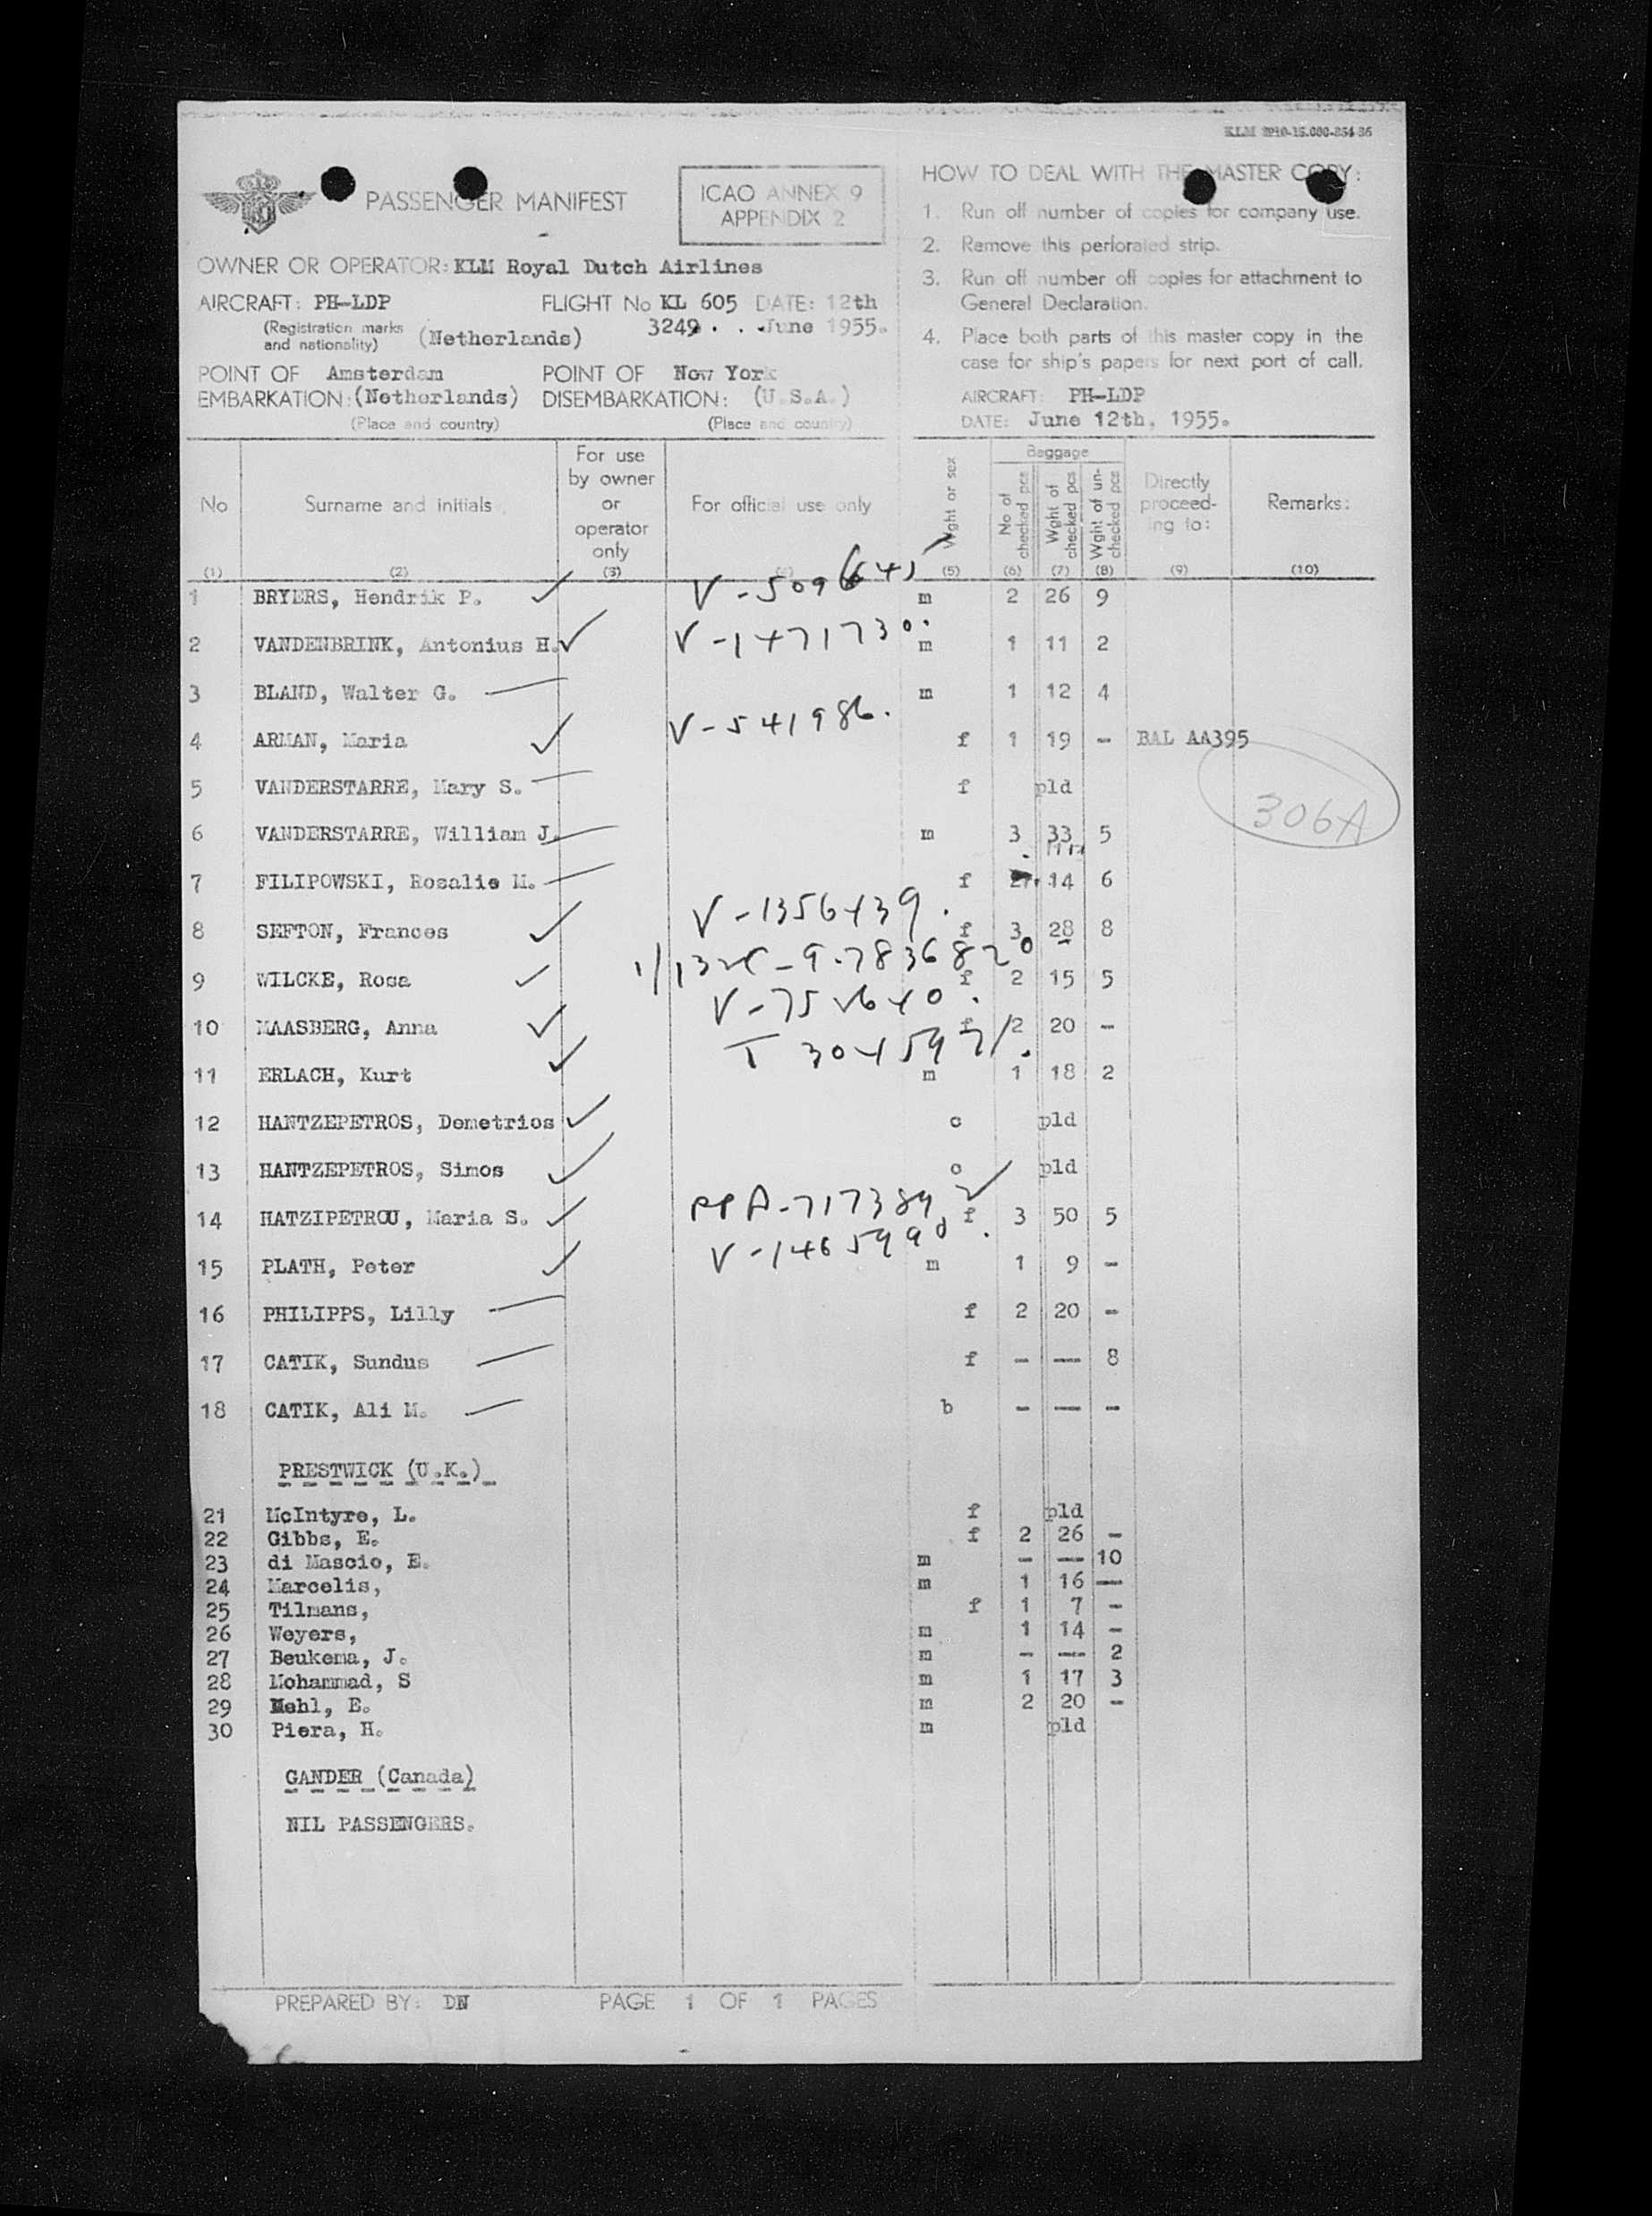 PASSENGER MANIFEST
ICAO ANNEX 9
APPENDIX 2
OWNER OR OPERATOR: KLM Royal Dutch Airlines
AIRCRAFT: PH-LDP FLIGHT No KL 605 DATE: 12th
(Registration marks and nationality) (Netherlands) 3249 . . June 1955.
POINT OF Amsterdam POINT OF New York
EMBARKATION: (Netherlands) DISEMBARKATION: (U.S.A.)
(Place and country) (Place and country)
HOW TO DEAL WITH THE MASTER COPY:
1. Run off number of copies for company use.
2. Remove this perforated strip.
3. Run off number off copies for attachment to
General Declaration.
4. Place both parts of this master copy in the
case for ship's papers for next port of call.
AIRCRAFT: PH-LDP
DATE: June 12th, 1955.
No Surname and initials For use by owner or operator only For official use only Wght or sex Baggage No of checked pcs Wght of checked pcs Wght of un-checked pcs Directly proceed-ing to: Remarks:
(1) (2) (3) (5) (6) (7) (8) (9) (10)
1 BRYERS, Hendrik P. m 2 26 9
2 VANDENBRINK, Antonius H. V-1471730. m 1 11 2
3 BLAND, Walter G. m 1 12 4
4 ARMAN, Maria V-541986. f 1 19 - BAL AA395
5 VANDERSTARRE, Mary S. f pld
306A
6 VANDERSTARRE, William J. m 3 33 5
7 FILIPOWSKI, Rosalie M. f 14 6
8 SEFTON, Frances V-1356439. f 3 28 8
9 WILCKE, Rosa f 2 15 5
10 MAASBERG, Anna f 2 20 -
11 ERLACH, Kurt m 1 18 2
12 HANTZEPETROS, Demetrios c pld
13 HANTZEPETROS, Simos c pld
14 HATZIPETROU, Maria S. f 3 50 5
15 PLATH, Peter m 1 9 -
16 PHILIPPS, Lilly f 2 20 -
17 CATIK, Sundus f - -- 8
18 CATIK, Ali M. b - -- -
PRESTWICK (U.K.)
21 McIntyre, L. f pld
22 Gibbs, E. f 2 26 -
23 di Mascio, E. m - -- 10
24 Marcelis, m 1 16 --
25 Tilmans, f 1 7 -
26 Weyers, m 1 14 -
27 Beukema, J. m - -- 2
28 Mohammad, S m 1 17 3
29 Mehl, E. m 2 20 -
30 Piera, H. m pld
GANDER (Canada)
NIL PASSENGERS.
PREPARED BY: DN PAGE 1 OF 1 PAGES